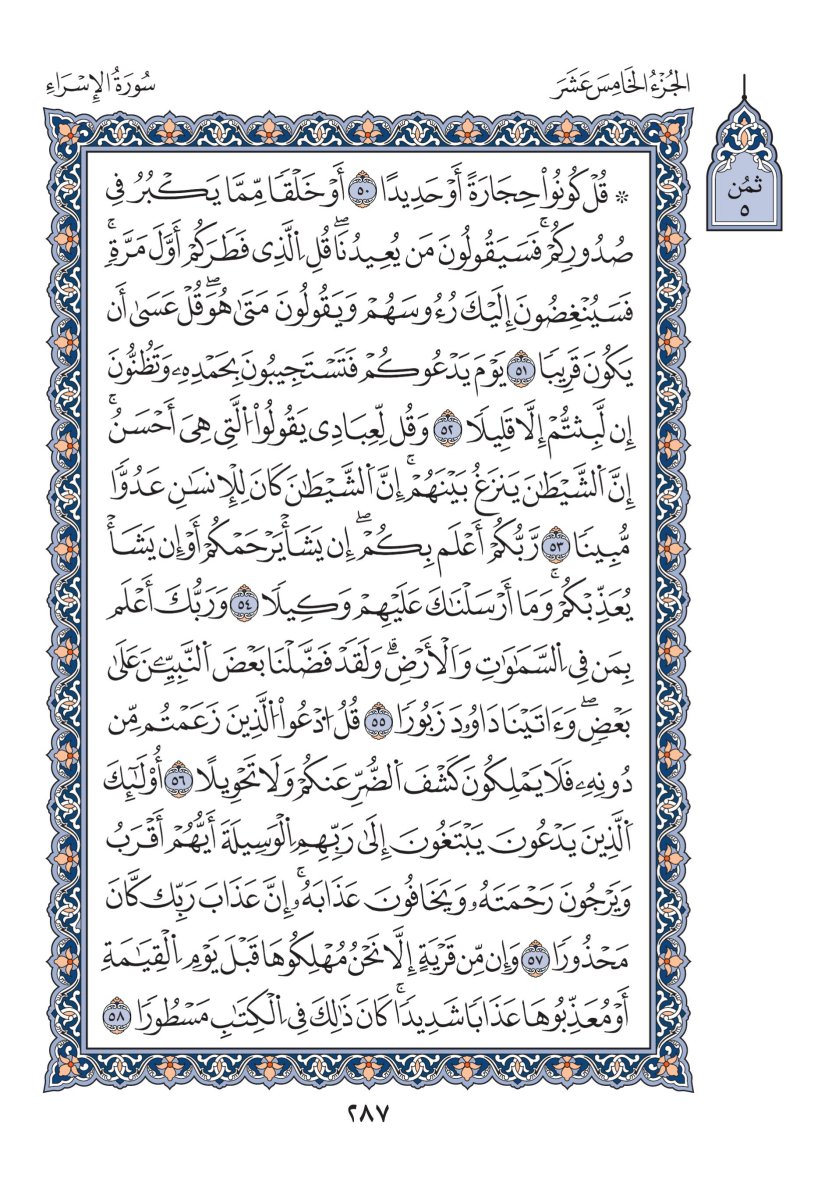 سُورَةُ الإِسْرَاءِ
الجُزْءُ الخَامِسَ عَشَرَ
ثُمُن
٥
۞ قُلْ كُونُواْ حِجَارَةً أَوْ حَدِيدًا ٥٠ أَوْ خَلْقًا مِّمَّا يَكْبُرُ فِي
صُدُورِكُمْۚ فَسَيَقُولُونَ مَن يُعِيدُنَاۖ قُلِ اِلَّذِي فَطَرَكُمْ أَوَّلَ مَرَّةٍۚ
فَسَيُنْغِضُونَ إِلَيْكَ رُءُوسَهُمْ وَيَقُولُونَ مَتَىٰ هُوَۖ قُلْ عَسَىٰ أَن
يَكُونَ قَرِيبًا ٥١ يَوْمَ يَدْعُوكُمْ فَتَسْتَجِيبُونَ بِحَمْدِهِۦ وَتَظُنُّونَ
إِن لَّبِثتُّمْ إِلَّا قَلِيلًا ٥٢ وَقُل لِّعِبَادِي يَقُولُواْ اُلَّتِي هِيَ أَحْسَنُۚ
إِنَّ اَلشَّيْطَٰنَ يَنزَغُ بَيْنَهُمْۚ إِنَّ اَلشَّيْطَٰنَ كَانَ لِلْإِنسَٰنِ عَدُوًّا
مُّبِينًا ٥٣ رَّبُّكُمْ أَعْلَم بِكُمْۖ إِن يَشَأْ يَرْحَمْكُمْ أَوْ إِن يَشَأْ
يُعَذِّبْكُمْۚ وَمَا أَرْسَلْنَٰكَ عَلَيْهِمْ وَكِيلًا ٥٤ وَرَبُّكَ أَعْلَم
بِمَن فِي اِلسَّمَٰوَٰتِ وَالْأَرْضِۗ وَلَقَدْ فَضَّلْنَا بَعْضَ اَلنَّبِيِّـۧنَ عَلَىٰ
بَعْضٍۖ وَءَاتَيْنَا دَاوُۥدَ زَبُورًا ٥٥ قُلُ اُدْعُواْ اُلَّذِينَ زَعَمْتُم مِّن
دُونِهِۦ فَلَا يَمْلِكُونَ كَشْفَ اَلضُّرِّ عَنكُمْ وَلَا تَحْوِيلًا ٥٦ أُوْلَٰٓئِكَ
اَلَّذِينَ يَدْعُونَ يَبْتَغُونَ إِلَىٰ رَبِّهِمِ اِلْوَسِيلَةَ أَيُّهُمْ أَقْرَبُ
وَيَرْجُونَ رَحْمَتَهُۥ وَيَخَافُونَ عَذَابَهُۥۚ إِنَّ عَذَابَ رَبِّك كَّانَ
مَحْذُورًا ٥٧ وَإِن مِّن قَرْيَةٍ إِلَّا نَحْنُ مُهْلِكُوهَا قَبْلَ يَوْمِ اِلْقِيَٰمَةِ
أَوْ مُعَذِّبُوهَا عَذَابًا شَدِيدًاۚ كَانَ ذَٰلِكَ فِي اِلْكِتَٰبِ مَسْطُورًا ٥٨
٢٨٧